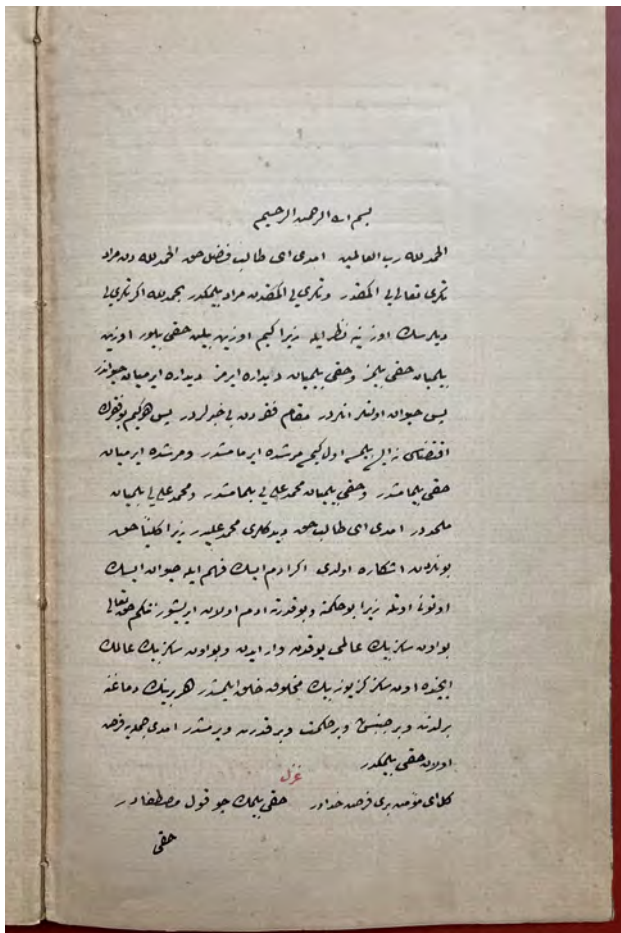 بسم الله الرحمن الرحيم
الحمد لله رب العالمين امدى اى طالب فضل حق الحمد لله دن مراد
تكرى تعالى يى اكمقدر و تكرى يى اكمقدن مراد بيلمكدر بحمد لله اكر تكرى يى
ديلرسك اوزينه نظر ايله زيرا كيم اوزين بيلن حقى بيلور اوزين
بيلميان حقى بيلمز و حقى بيلميان ديداره ايرمز ديداره ايرميان حيواندر
پس حيوان اولنلر انلردر مقام فقردن بى خبرلردر پس هر كيم بو فقرك
اقتضاسى بيلمسه اول كيمسه مرشده ايرمامشدر و مرشده ايرميان
حقى بيلمامشدر و حقى بيلميان محمد على يى بيلمامشدر و محمد على يى بيلميان
ملحددر امدى اى طالب حق ديدكلرى محمد عليدر زيرا كليا حق
بونلردن اشكاره اولدى اكر ادم ايسك فهم ايله حيوان ايسك
اوتونى اوتله زيرا بو حكمته و بو قدرته ادم اولان ايريشور نتكم حق تعالى
بو اون سكز بيك عالمى يوقدن وار ايدن و بو اون سكز بيك عالمك
ايچنده اون سكز كز يوز بيك مخلوق خلق ايلمشدر هر برينك دماغنه
بر لذت و بر جنبش و بر حكمت و بر قدرت ويرمشدر امدى جمله يه فرض
اولان حقى بيلمكدر
غزل
كل اى مؤمن برى فرض خدادر حقى بيلمك چو قول مصطفادر
حقى